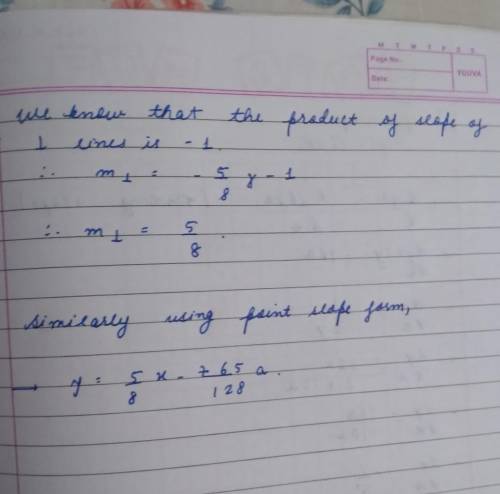 M T W T F S S
Page No.:
Date:
YOUVA
We know that the product of slope of
⊥ lines is -1.
∴ m⊥ = - 5/8 x - 1
∴ m⊥ = 5/8 .
Similarly using point slope form,
→ y = 5/8 x - 765/128 a.